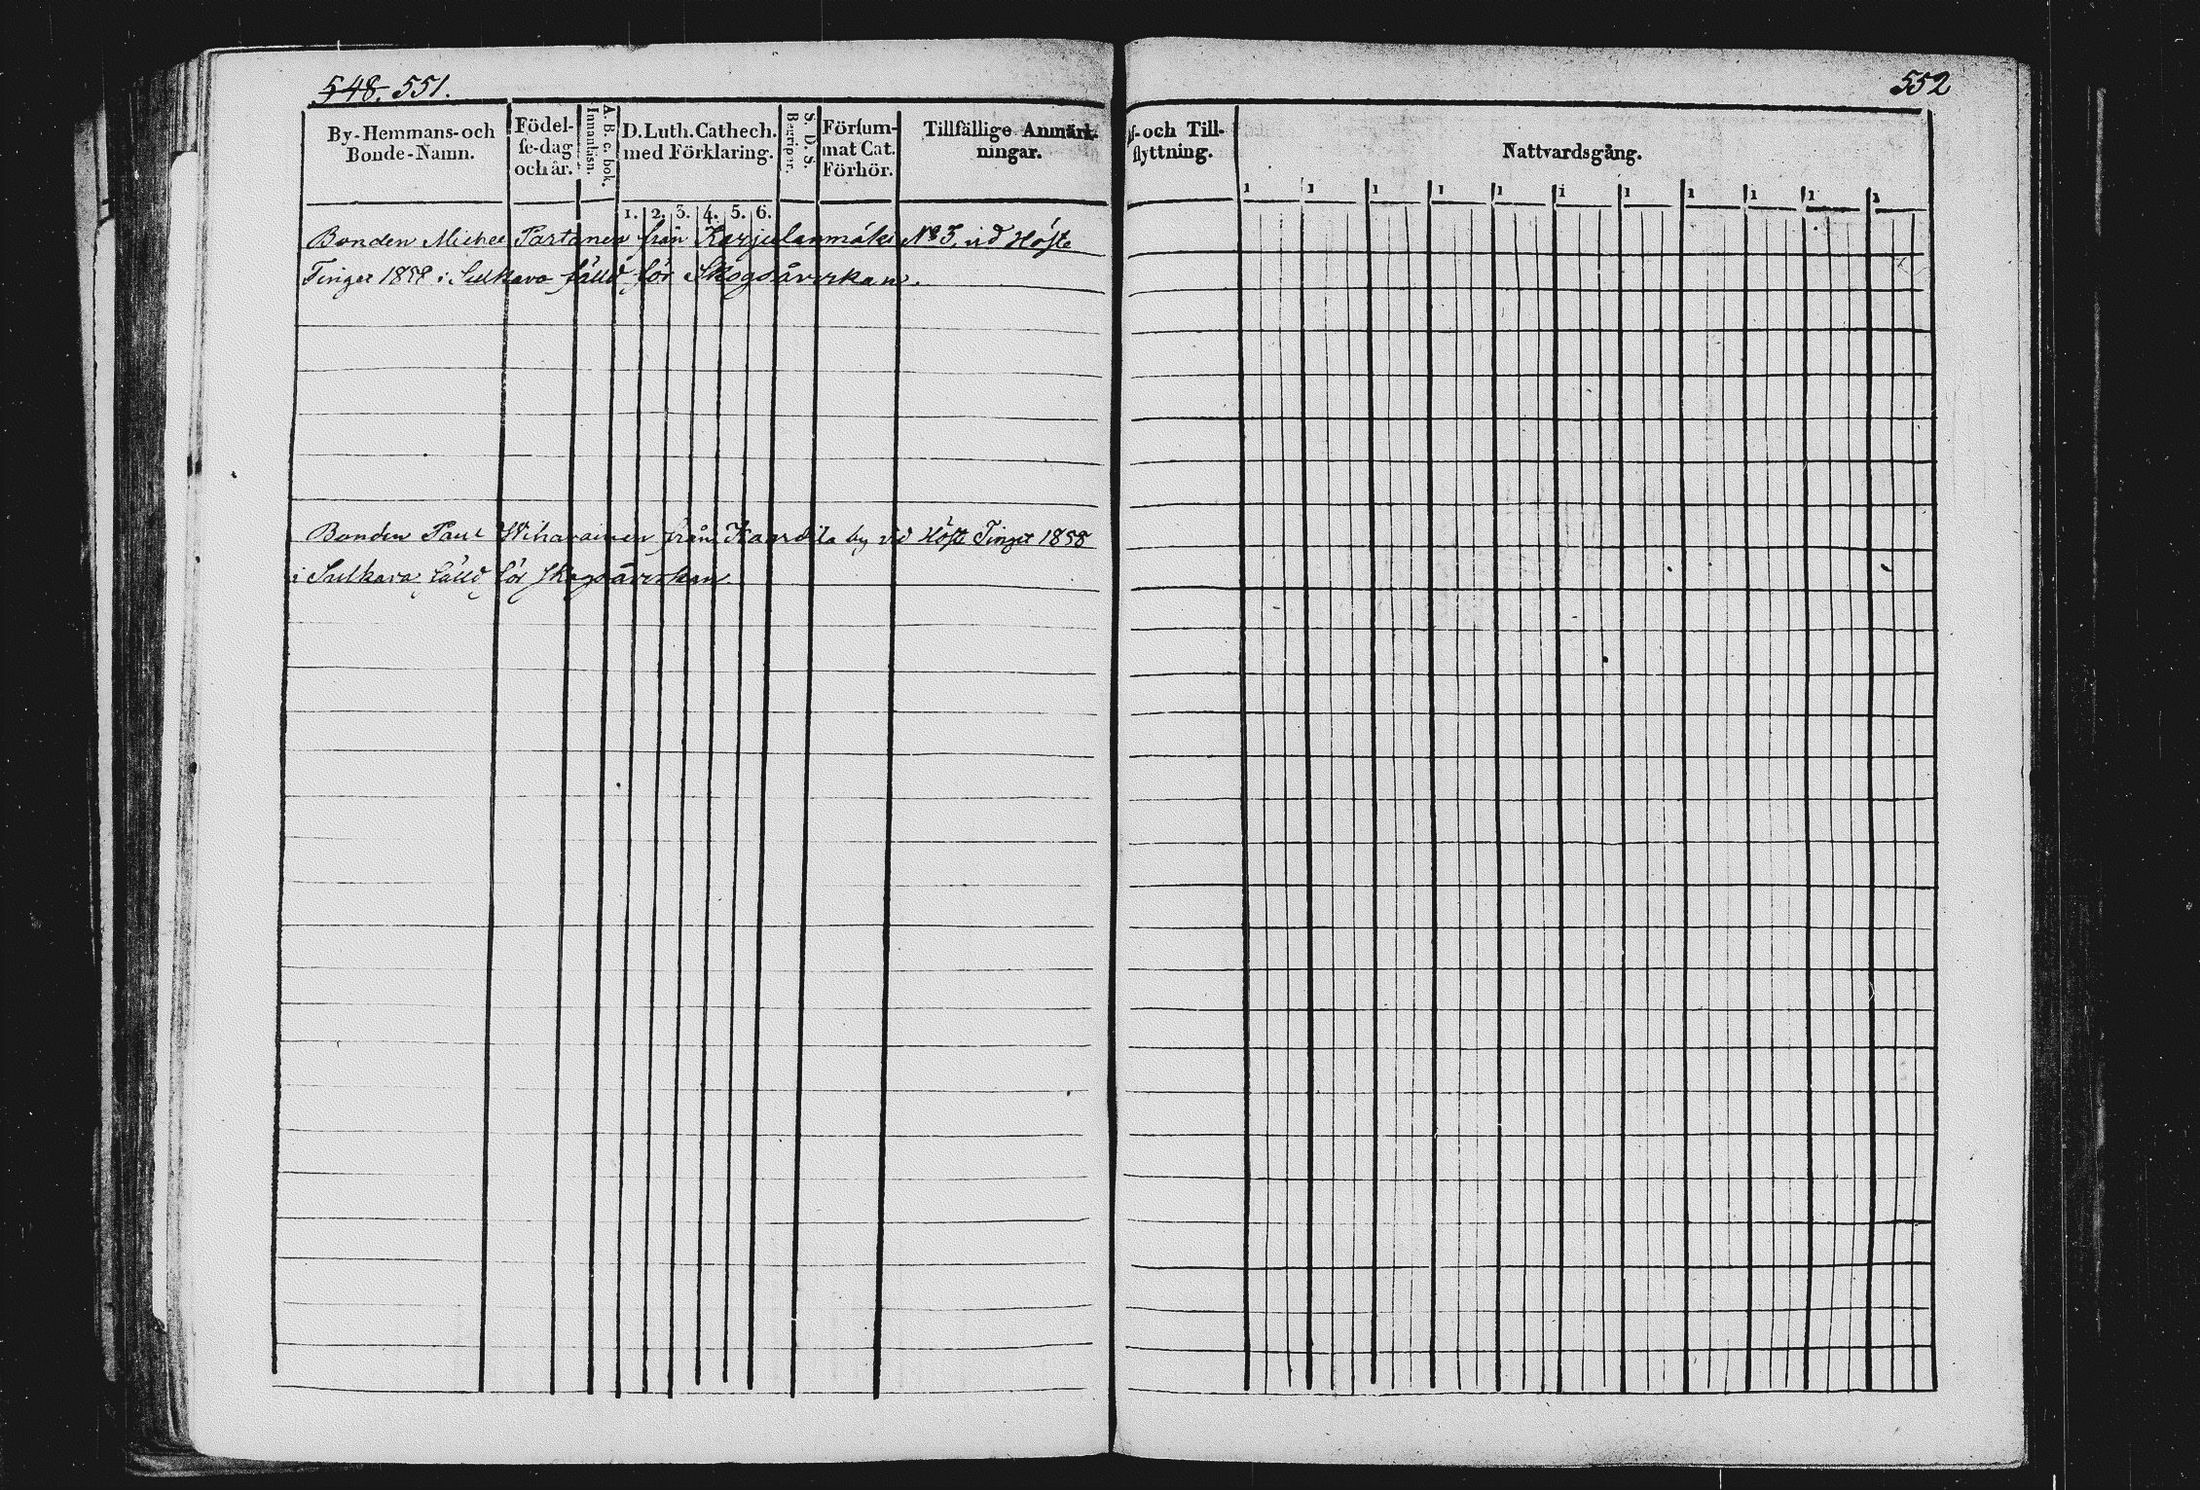 548. 551.
552
By-Hemmans-och
Bonde-Namn.
Födel-
se-dag
och år.
A. B. c. bok.
Innanläsn.
D. Luth. Cathech.
med Förklaring.
1. 2. 3. 4. 5. 6.
S. D. S.
Begriper.
Försum-
mat Cat.
Förhör.
Tillfällige Anmärk-
ningar.
och Till-
flyttning.
Nattvardsgång.
1 1 1 1 1 1 1 1 1 1 1
Bonden Michel Partanen från Karjulanmäki No 3, vid Höste
Tinget 1858 i Sulkava fälld för Skogsåverkan.
Bonden Paul Wihavainen från Kaartila by vid Höste Tinget 1858
i Sulkava fälld för Skogsåverkan.